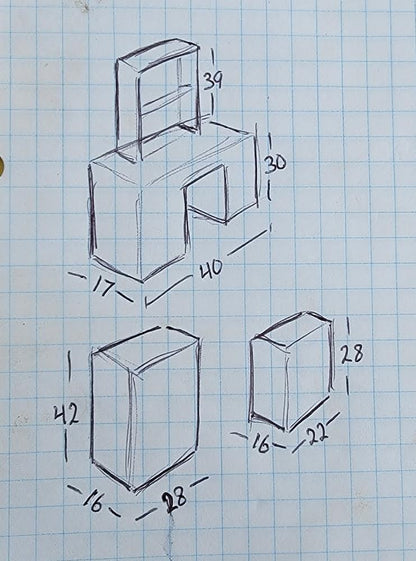 39
30
40
17
28
42
16
22
16
28